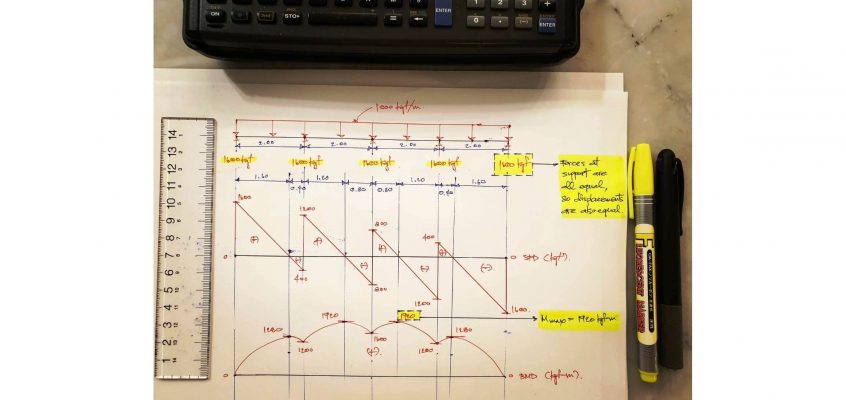 STO▸
ENTER
ENTER
1000 kgf/m.
2.00 2.00 2.00 2.00
1600 kgf 1600 kgf 1600 kgf 1600 kgf 1600 kgf
Forces at
support are
all equal,
so displacements
are also equal.
1.60 0.40 1.20 0.80 0.80 1.20 0.40 1.60
1600
1200
800
400
(+) (-) (+) (-) (+) (-) (+) (-)
0 0 SFD (kgf).
400
800
1200
1600
1280 1920 1920 1280
1200 1600 1200
(+)
Mmax = 1920 kgf-m
0 0 BMD (kgf-m).
1 2 3 4 5 6 7 8 9 10 11 12 13 14